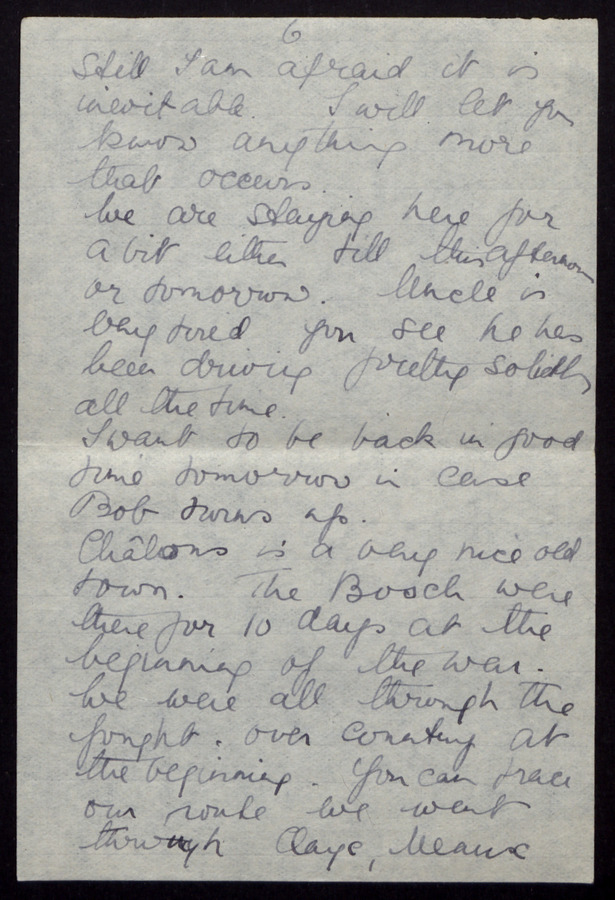 6
Still I am afraid it is
inevitable. I will let you
know anything more
that occurs.
We are staying here for
a bit either till this afternoon
or tomorrow. Uncle is
very tired you see he has
been driving pretty solidly
all the time.
I want to be back in good
time tomorrow in case
Bob turns up.
Châlons is a very nice old
town. The Bosch were
there for 10 days at the
beginning of the war.
We were all through the
fought. over country at
the beginning. You can trace
our route we went
through Claye, Meaux